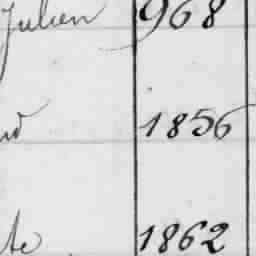 Julien 968
1856
te 1862